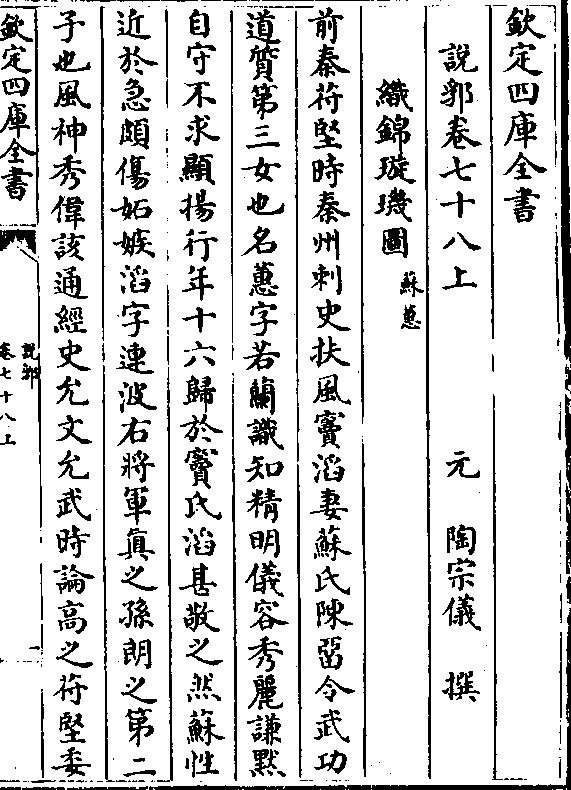 欽定四庫全書
說郛卷七十八上
元 陶宗儀 撰
織錦璇璣圖
蘇蕙
前秦苻堅時秦州刺史扶風竇滔妻蘇氏陳留令武功
道質第三女也名蕙字若蘭識知精明儀容秀麗謙默
自守不求顯揚行年十六歸於竇氏滔甚敬之然蘇性
近於急頗傷妬嫉滔字連波右將軍眞之孫朗之第二
子也風神秀偉該通經史允文允武時論高之苻堅委
欽定四庫全書
說郛
卷七十八上
一